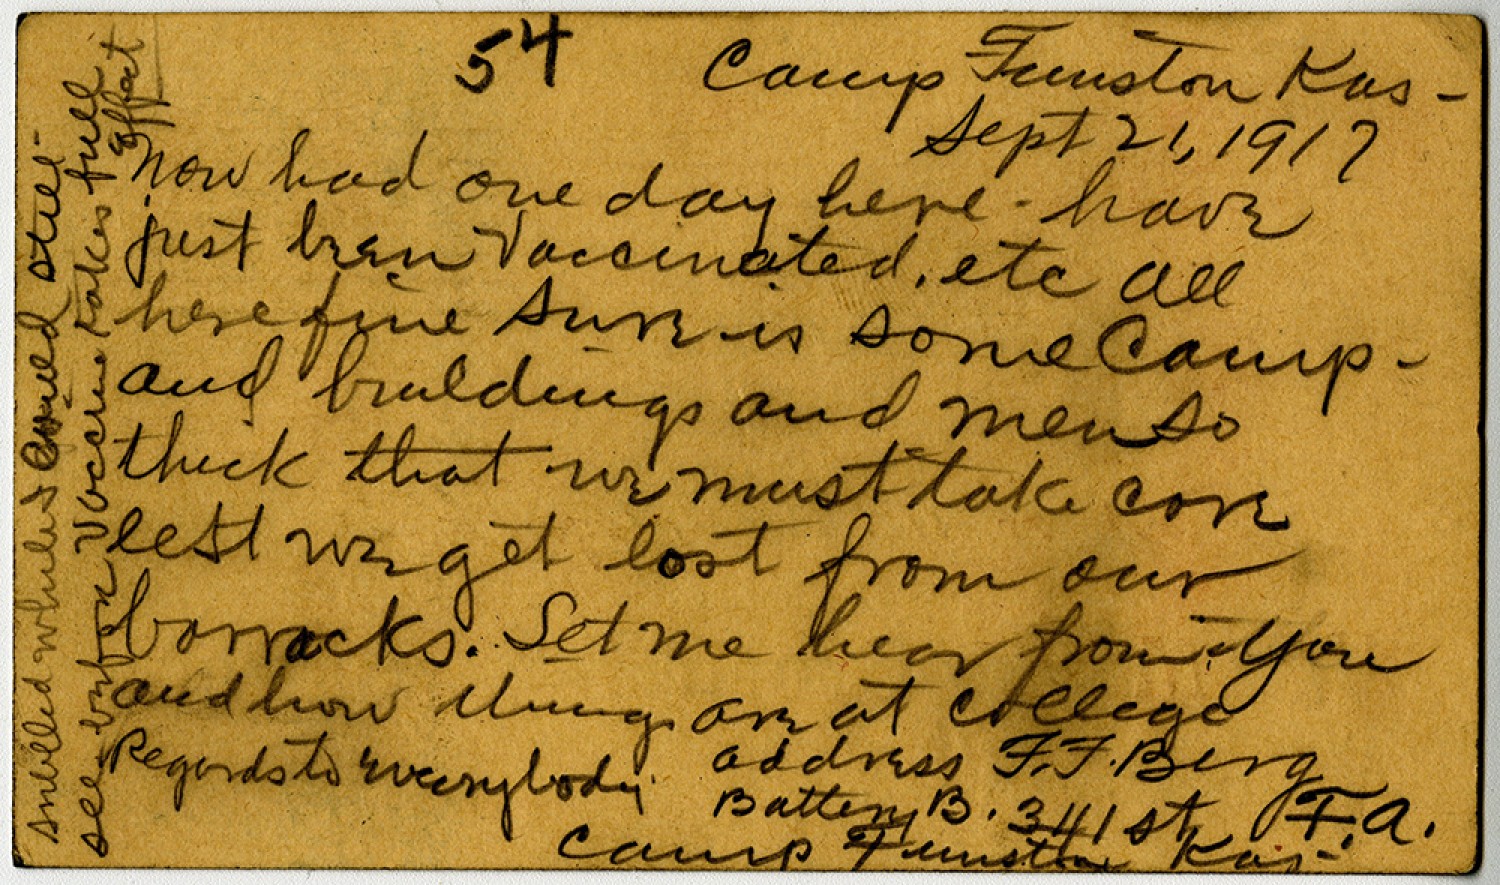 54
Camp Funston Kas-
Sept 21, 1917
Now had one day here - have
just been vaccinated, etc all
here fine Sure is some Camp-
and buildings and men so
thick that we must take care
lest we get lost from our
barracks. Let me hear from you
and how things are at College
Regards to everybody.
address F.F. Berg
Battery B. 341 st F.A.
Camp Funston Kas-
smelled while I could still-
see before Vaccine takes full
effect